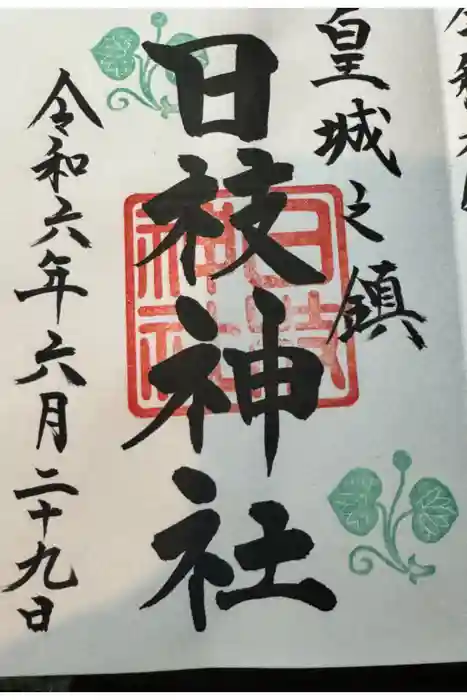 皇城之鎮
日枝神社
日枝神社
令和六年六月二十九日